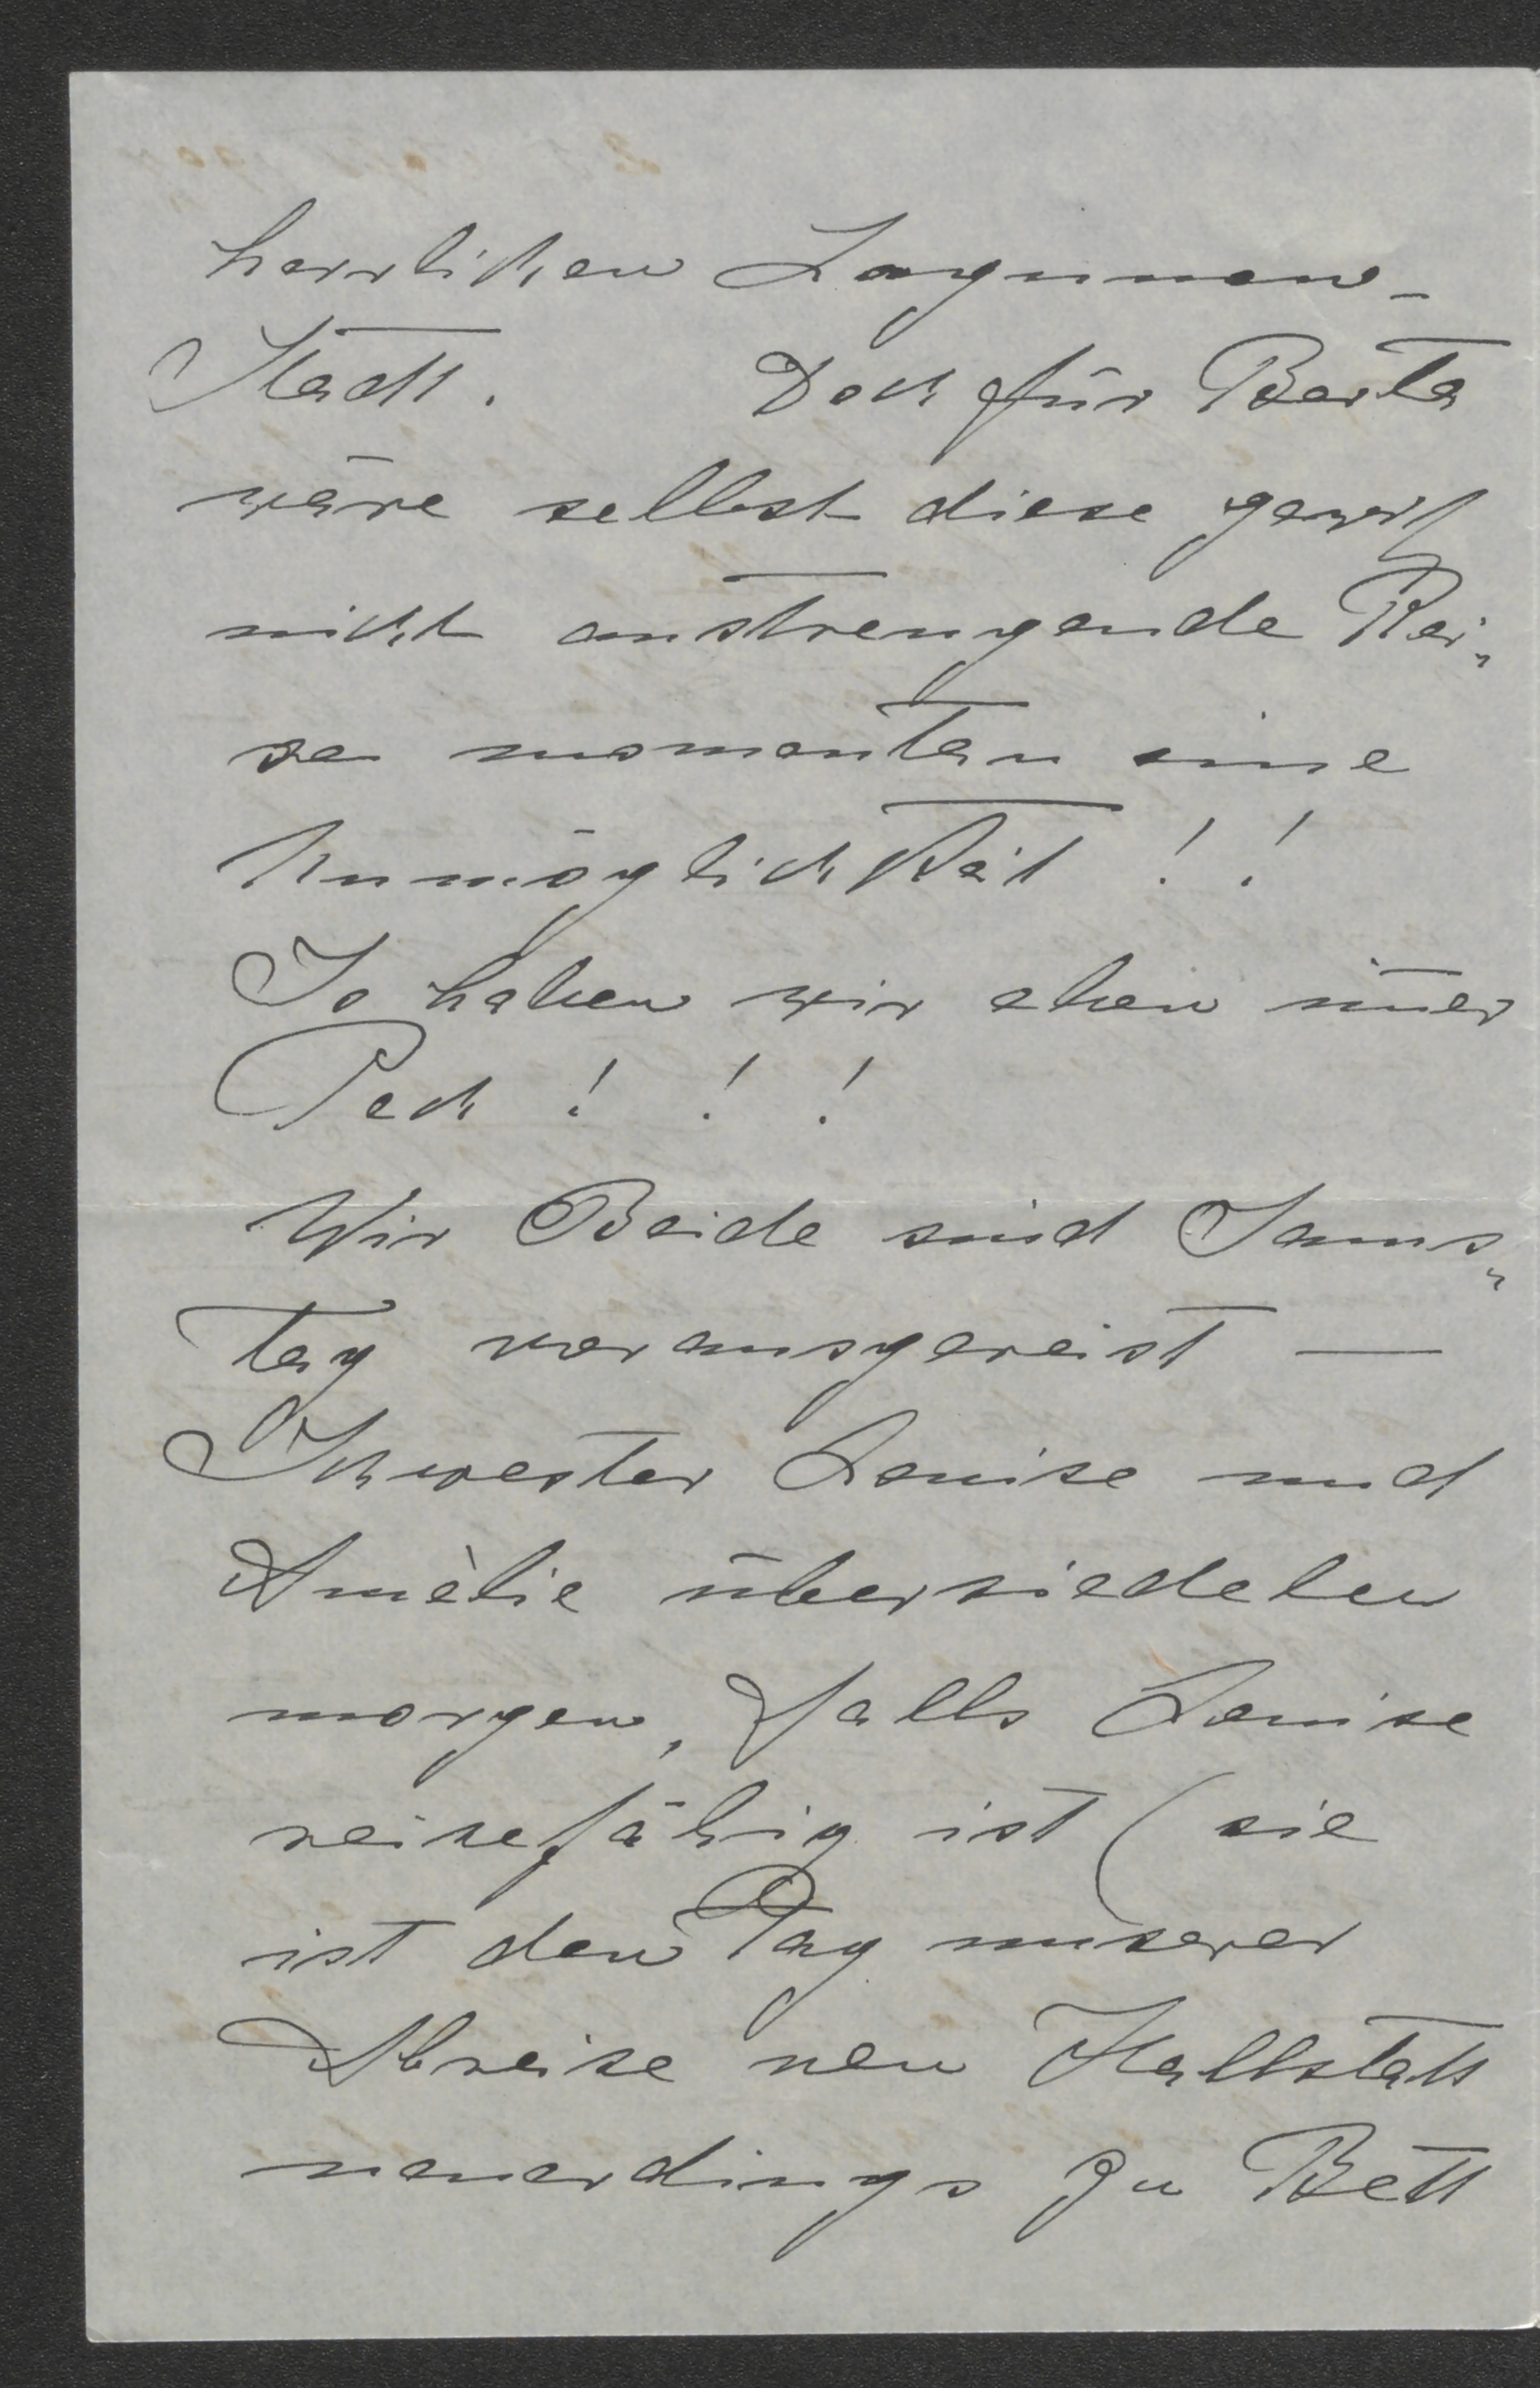 herrlichen Lagunen-
Stadt. Doch für Berta
wäre selbst diese gewiß
nicht anstrengende Rei„
se momentan eine
Unmöglichkeit !!
So haben wir eben im̅er
Pech ! ! !
Wir Beide sind Sams„
tag vorausgereist —
Schwester Louise und
Amèlie übersiedelen
morgen, falls Louise
reisefähig ist (sie
ist den Tag unserer
Abreise von Hallstatt
neuerdings zu Bett